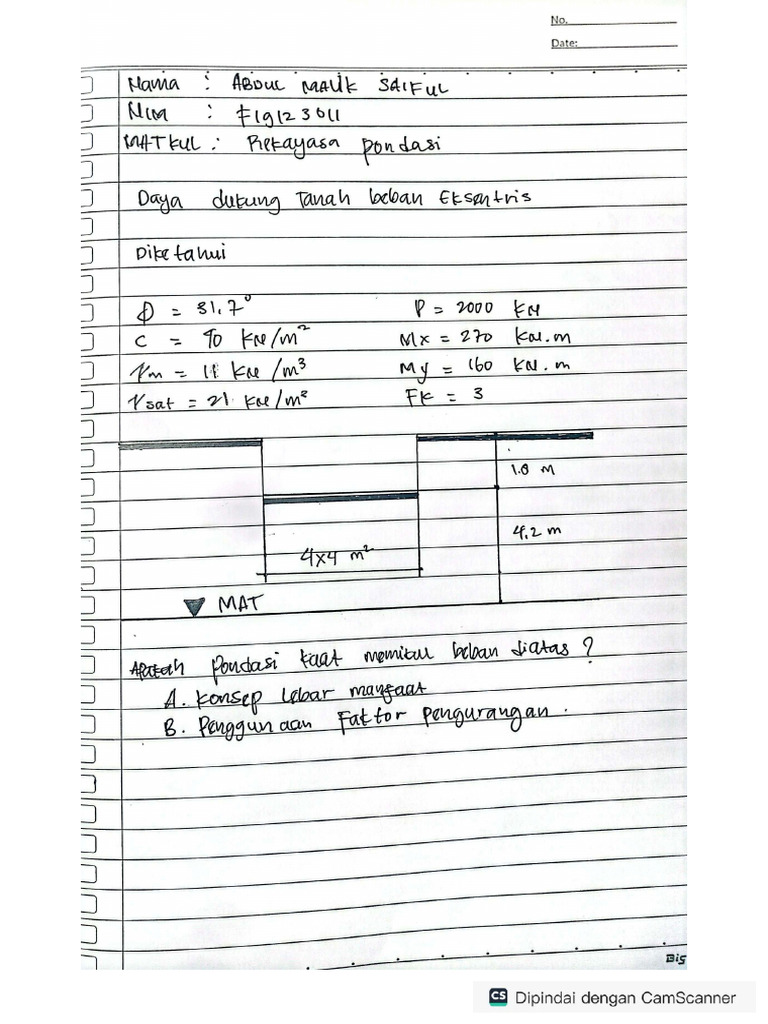 No.
Date:
Nama : ABDUL MALIK SAIFUL
NIM : F19123011
MATKUL : Rekayasa pondasi
Daya dukung Tanah beban Eksentris
Diketahui
ϕ = 31.7° P = 2000 KN
C = 90 KN/m² Mx = 270 KN.m
γm = 11 KN/m³ My = 160 KN.m
γsat = 21 KN/m² FK = 3
1.8 m
4.2 m
4x4 m²
MAT
Apakah pondasi kuat memikul beban diatas ?
A. Konsep Lebar manfaat
B. Penggunaan Faktor pengurangan.
Big
CS Dipindai dengan CamScanner